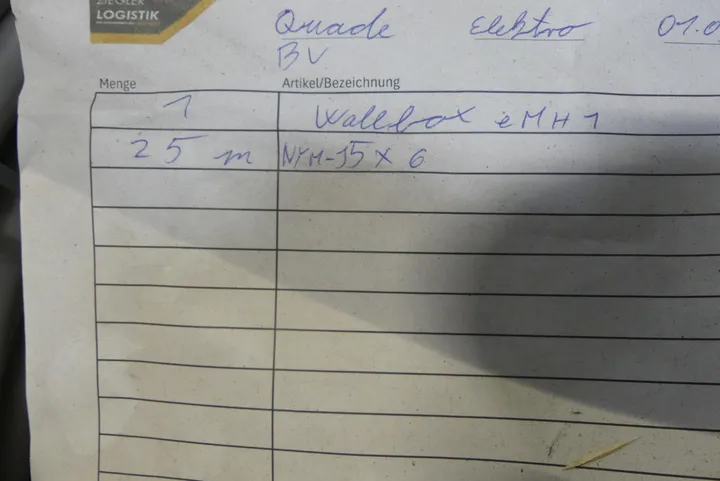 ZIEGLER
LOGISTIK
Quade Elektro 01.0
BV
Menge Artikel/Bezeichnung
1 Wallbox eMH1
25 m NYM-J5x6